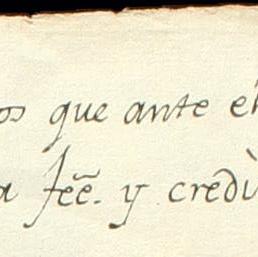 os que ante el
a feē. y credi